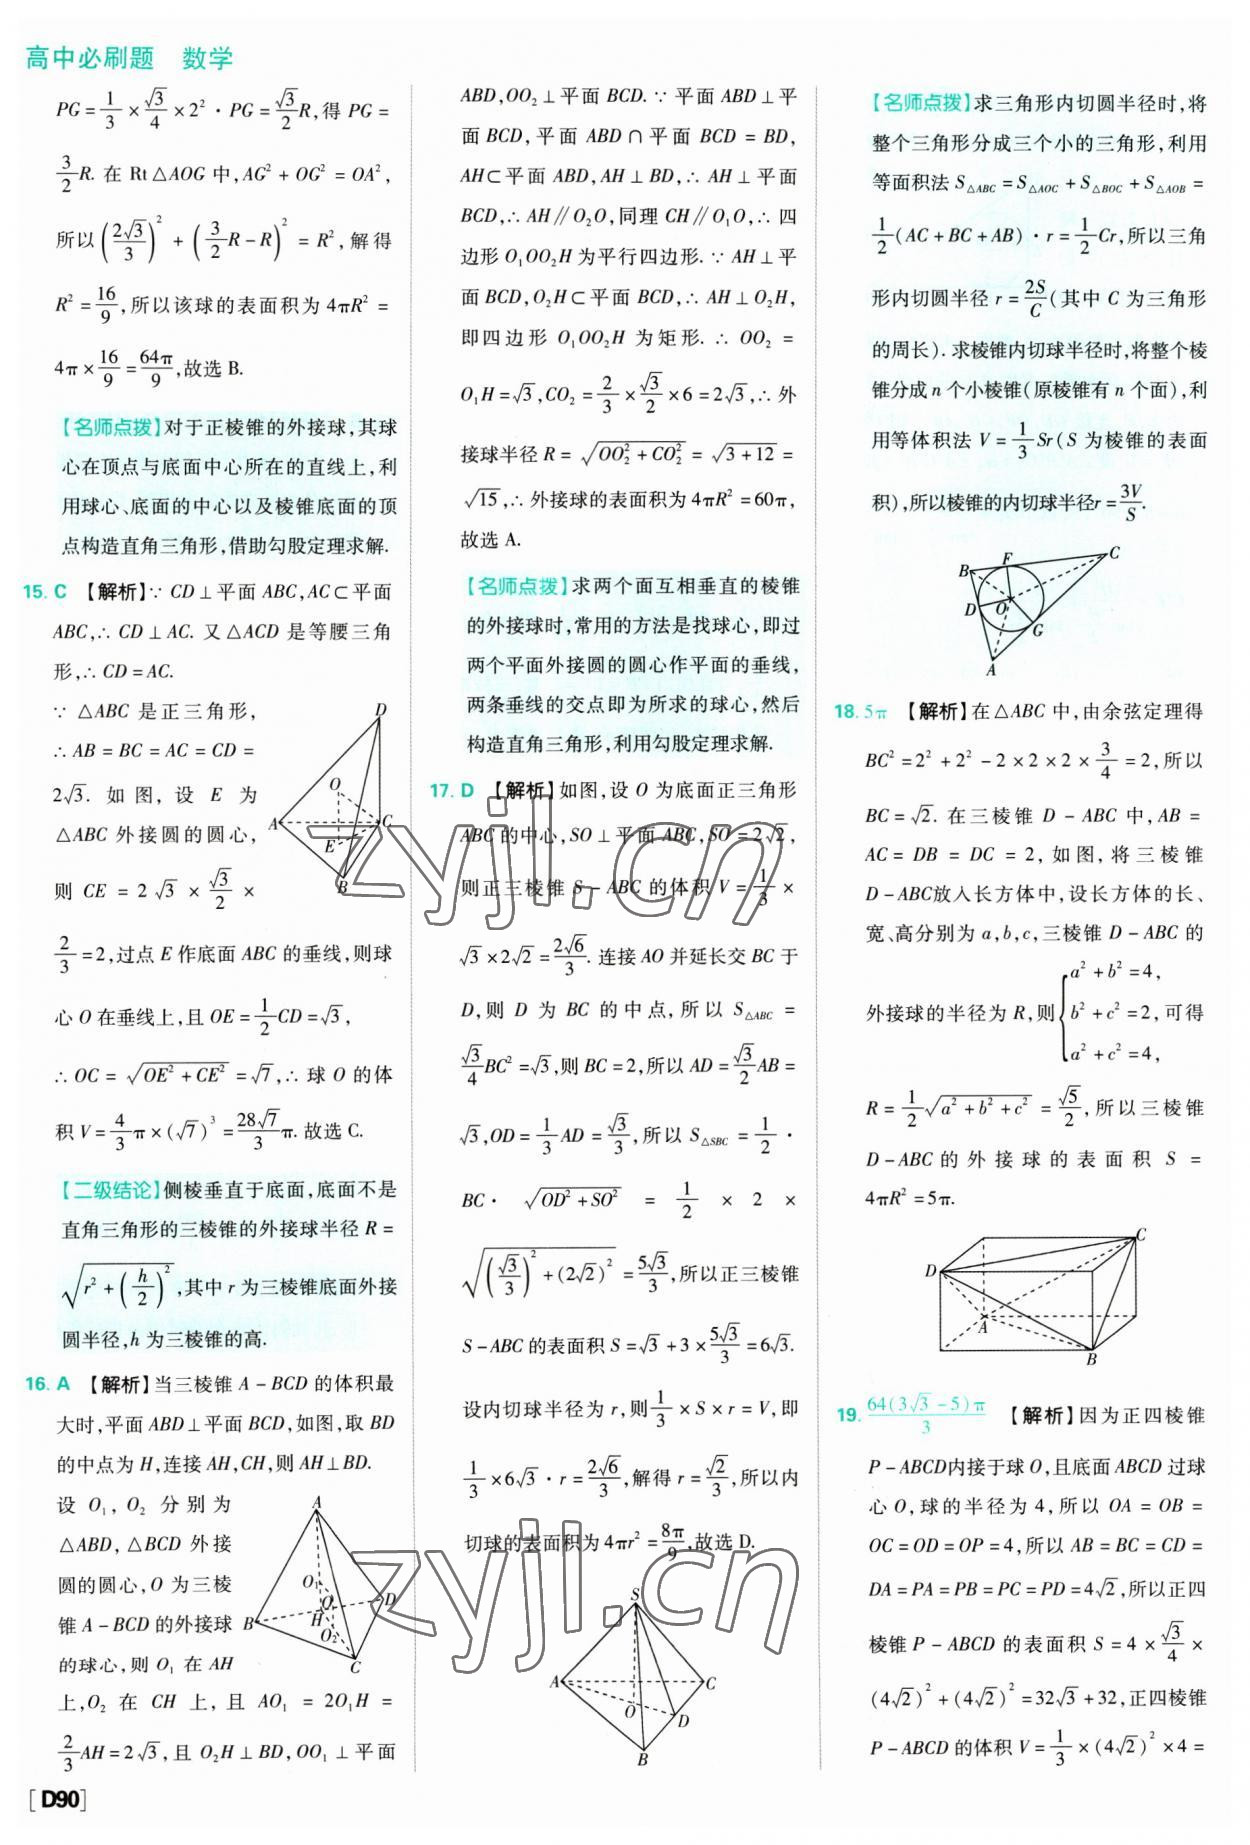 高中必刷题 数学
PG=1/3×√3/4×2²·PG=√3/2R,得 PG=
3/2R. 在 Rt△AOG 中,AG²+OG²=OA²,
所以(2√3/3)²+(3/2R-R)²=R²,解得
R²=16/9,所以该球的表面积为 4πR²=
4π×16/9=64π/9,故选 B.
【名师点拨】对于正棱锥的外接球,其球
心在顶点与底面中心所在的直线上,利
用球心、底面的中心以及棱锥底面的顶
点构造直角三角形,借助勾股定理求解.
15. C 【解析】∵ CD⊥平面 ABC,AC⊂平面
ABC,∴ CD⊥AC. 又△ACD 是等腰三角
形,∴ CD=AC.
∵ △ABC 是正三角形,
∴ AB=BC=AC=CD=
2√3. 如图,设 E 为
△ABC 外接圆的圆心,
则 CE=2√3×√3/2×
2/3=2,过点 E 作底面 ABC 的垂线,则球
心 O 在垂线上,且 OE=1/2CD=√3,
∴ OC=√(OE²+CE²)=√7,∴ 球 O 的体
积 V=4/3π×(√7)³=28√7/3π. 故选 C.
【二级结论】侧棱垂直于底面,底面不是
直角三角形的三棱锥的外接球半径 R=
√(r²+(h/2)²),其中 r 为三棱锥底面外接
圆半径,h 为三棱锥的高.
16. A 【解析】当三棱锥 A-BCD 的体积最
大时,平面 ABD⊥平面 BCD,如图,取 BD
的中点为 H,连接 AH,CH,则 AH⊥BD.
设 O₁,O₂ 分别为
△ABD,△BCD 外接
圆的圆心,O 为三棱
锥 A-BCD 的外接球
的球心,则 O₁ 在 AH
上,O₂ 在 CH 上,且 AO₁=2O₁H=
2/3AH=2√3,且 O₂H⊥BD,OO₁⊥平面
D
O
A
C
E
B
A
O₁
O
D
B
H
O₂
C
[D90]
ABD,OO₂⊥平面 BCD. ∵ 平面 ABD⊥平
面 BCD,平面 ABD∩平面 BCD=BD,
AH⊂平面 ABD,AH⊥BD,∴ AH⊥平面
BCD,∴ AH∥O₂O,同理 CH∥O₁O,∴ 四
边形 O₁OO₂H 为平行四边形. ∵ AH⊥平
面 BCD,O₂H⊂平面 BCD,∴ AH⊥O₂H,
即四边形 O₁OO₂H 为矩形. ∴ OO₂=
O₁H=√3,CO₂=2/3×√3/2×6=2√3,∴ 外
接球半径 R=√(OO₂²+CO₂²)=√(3+12)=
√15,∴ 外接球的表面积为 4πR²=60π,
故选 A.
【名师点拨】求两个面互相垂直的棱锥
的外接球时,常用的方法是找球心,即过
两个平面外接圆的圆心作平面的垂线,
两条垂线的交点即为所求的球心,然后
构造直角三角形,利用勾股定理求解.
17. D 【解析】如图,设 O 为底面正三角形
ABC 的中心,SO⊥平面 ABC,SO=2√2,
则正三棱锥 S-ABC 的体积 V=1/3×
√3×2√2=2√6/3. 连接 AO 并延长交 BC 于
D,则 D 为 BC 的中点,所以 S△ABC=
√3/4BC²=√3,则 BC=2,所以 AD=√3/2AB=
√3,OD=1/3AD=√3/3,所以 S△SBC=1/2·
BC·√(OD²+SO²)=1/2×2×
√((√3/3)²+(2√2)²)=5√3/3,所以正三棱锥
S-ABC 的表面积 S=√3+3×5√3/3=6√3.
设内切球半径为 r,则1/3×S×r=V,即
1/3×6√3·r=2√6/3,解得 r=√2/3,所以内
切球的表面积为 4πr²=8π/9,故选 D.
S
A
C
O
D
B
【名师点拨】求三角形内切圆半径时,将
整个三角形分成三个小的三角形,利用
等面积法 S△ABC=S△AOC+S△BOC+S△AOB=
1/2(AC+BC+AB)·r=1/2Cr,所以三角
形内切圆半径 r=2S/C(其中 C 为三角形
的周长). 求棱锥内切球半径时,将整个棱
锥分成 n 个小棱锥(原棱锥有 n 个面),利
用等体积法 V=1/3Sr(S 为棱锥的表面
积),所以棱锥的内切球半径r=3V/S.
F
C
B
D
O
G
A
18. 5π 【解析】在△ABC 中,由余弦定理得
BC²=2²+2²-2×2×2×3/4=2,所以
BC=√2. 在三棱锥 D-ABC 中,AB=
AC=DB=DC=2,如图,将三棱锥
D-ABC放入长方体中,设长方体的长、
宽、高分别为 a,b,c,三棱锥 D-ABC 的
外接球的半径为 R,则{a²+b²=4, b²+c²=2, a²+c²=4,可得
R=1/2√(a²+b²+c²)=√5/2,所以三棱锥
D-ABC 的外接球的表面积 S=
4πR²=5π.
C
D
A
B
19. 64(3√3-5)π/3 【解析】因为正四棱锥
P-ABCD内接于球 O,且底面 ABCD 过球
心 O,球的半径为 4,所以 OA=OB=
OC=OD=OP=4,所以 AB=BC=CD=
DA=PA=PB=PC=PD=4√2,所以正四
棱锥 P-ABCD 的表面积 S=4×√3/4×
(4√2)²+(4√2)²=32√3+32,正四棱锥
P-ABCD 的体积 V=1/3×(4√2)²×4=
zyjl.cn
zyjl.cn